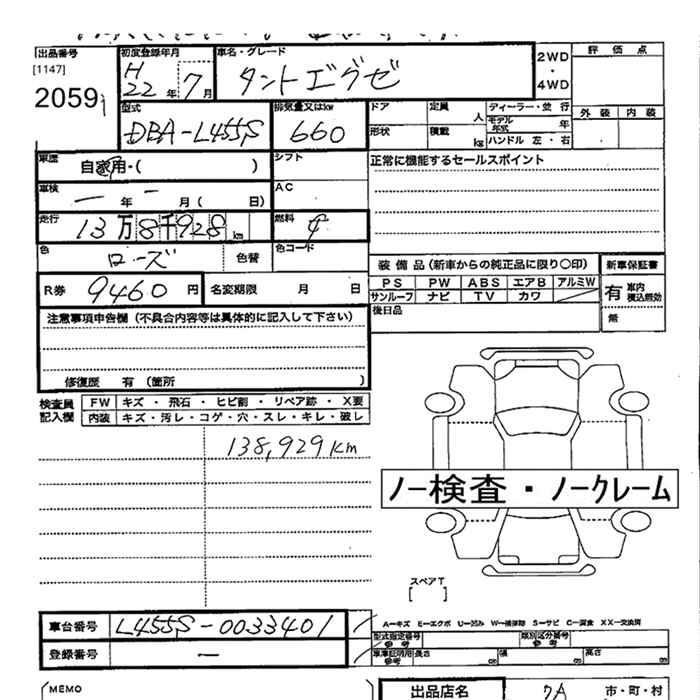 出品番号
[1147]
2059
初度登録年月
H
22 年 7 月
車名・グレード
タントエグゼ
2WD
・
4WD
評価点
外装 内装
型式
DBA-L455S
排気量又はkw
660
ドア
定員 人
ディーラー・並行
モデル年式 年
形状
積載 kg
ハンドル 左・右
車歴
自家用・( )
シフト
正常に機能するセールスポイント
車検
ー 年 ー 月 ( 日)
AC
走行
13万8千928 km
燃料
色
ローズ
色替
色コード
装備品 (新車からの純正品に限り○印)
新車保証書
PS PW ABS エアB アルミW
サンルーフ ナビ TV カワ
有 車内積込無効
無
R券 9460 円
名変期限 月 日
後日品
注意事項申告欄 (不具合内容等は具体的に記入して下さい)
修復歴 有 (箇所 )
検査員記入欄
FW キズ・飛石・ヒビ割・リペア跡・X要
内装 キズ・汚レ・コゲ・穴・スレ・キレ・破レ
138,929km
ノー検査・ノークレーム
スペアT
[ ]
車台番号
L455S-0033401
登録番号
ー
A―キズ E―エクボ U―凹み W―補修跡 S―サビ C―腐食 XX―交換済
型式指定番号
参考
類別区分番号
参考
車庫証明用
参考
長さ cm 幅 cm 高さ cm
MEMO
出品店名
市・町・村